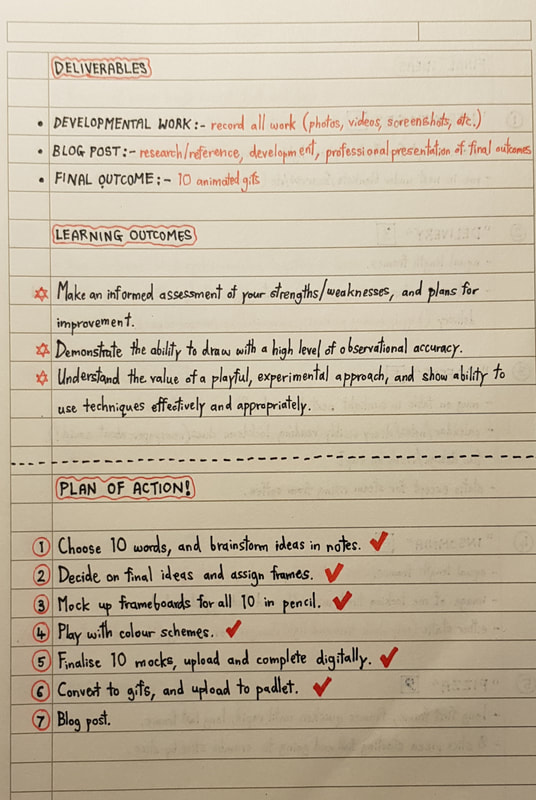 DELIVERABLES
• DEVELOPMENTAL WORK:- record all work (photos, videos, screenshots, etc.)
• BLOG POST:- research/reference, development, professional presentation of final outcomes
• FINAL OUTCOME:- 10 animated gifs
LEARNING OUTCOMES
Make an informed assessment of your strengths/weaknesses, and plans for
improvement.
Demonstrate the ability to draw with a high level of observational accuracy.
Understand the value of a playful, experimental approach, and show ability to
use techniques effectively and appropriately.
PLAN OF ACTION!
1 Choose 10 words, and brainstorm ideas in notes. ✔
2 Decide on final ideas and assign frames. ✔
3 Mock up frameboards for all 10 in pencil. ✔
4 Play with colour schemes. ✔
5 Finalise 10 mocks, upload and complete digitally. ✔
6 Convert to gifs, and upload to padlet. ✔
7 Blog post.